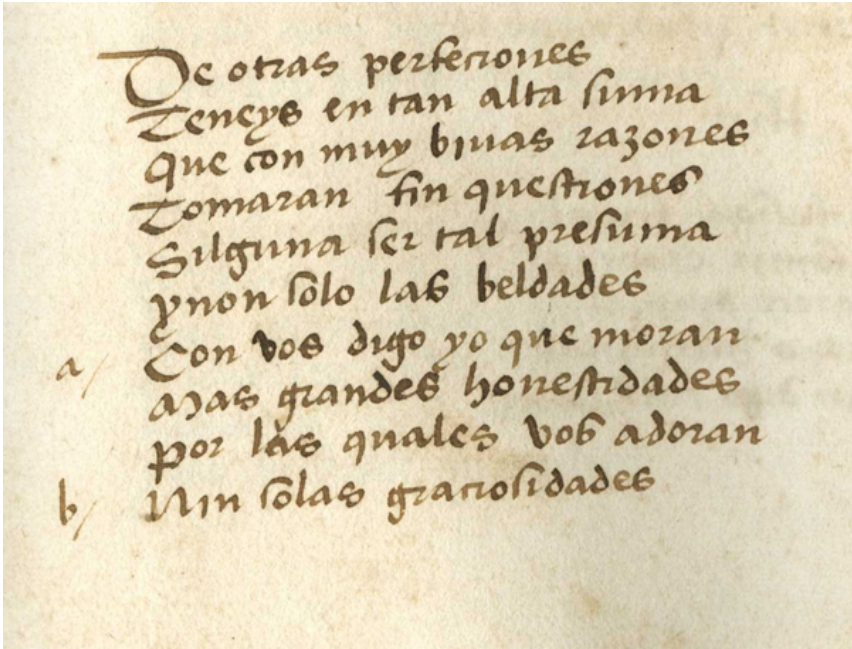 De otras perfeciones
Teneys en tan alta suma
Que con muy biuas razones
Tomaran fin questiones
Silguna ser tal presuma
ynon solo las beldades
a/ Con vos digo yo que moran
Mas grandes honestidades
por las quales vos adoran
b/ Nin solas graciosidades